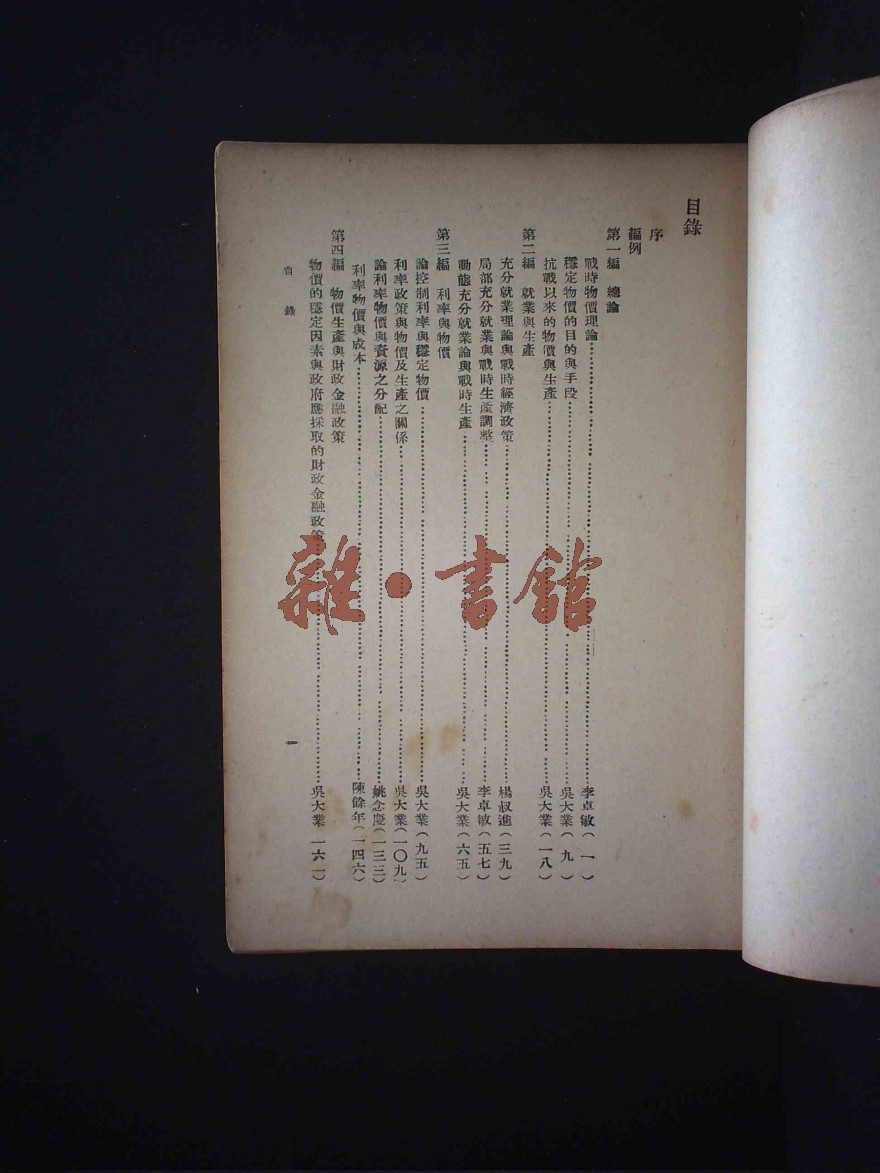 目錄
序
編例
第一編 總論
戰時物價理論……李卓敏(一)
穩定物價的目的與手段……吳大業(九)
抗戰以來的物價與生產……吳大業(一八)
第二編 就業與生產
充分就業理論與戰時經濟政策……楊叔進(三九)
局部充分就業與戰時生產調整……李卓敏(五七)
動態充分就業論與戰時生產……吳大業(六五)
第三編 利率與物價
論控制利率與穩定物價……吳大業(九五)
利率政策與物價及生產之關係……吳大業(一〇九)
論利率物價與資源之分配……姚念慶(一三三)
利率物價與成本……陳餘年(一四六)
第四編 物價生產與財政金融政策
物價的穩定因素與政府應採取的財政金融政策……吳大業(一六一)
目錄
一
雜·書館